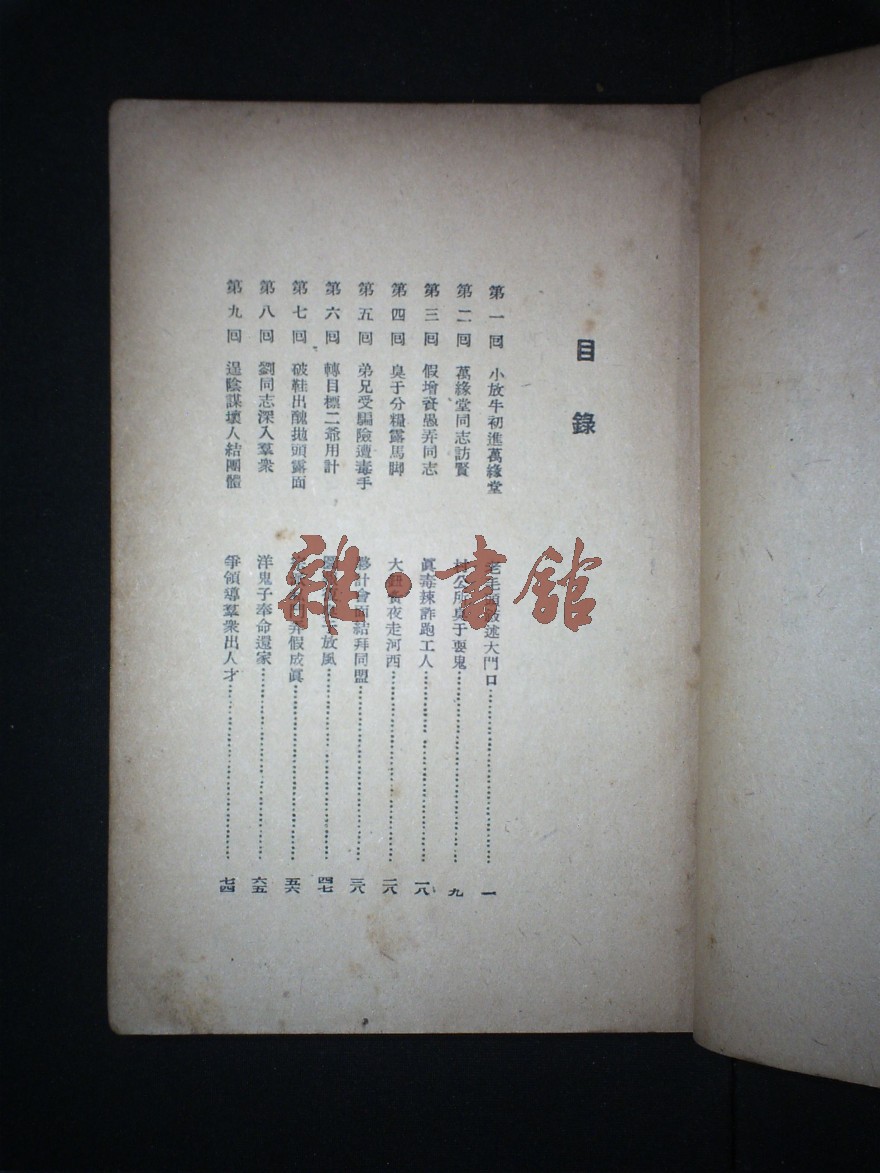 目錄
第一回 小放牛初進萬緣堂 老毛頭 述大門口 一
第二回 萬緣堂同志訪賢 村公所臭于耍鬼 九
第三回 假增資愚弄同志 眞毒辣詐跑工人 一八
第四回 臭于分糧露馬脚 大 夜走河西 二八
第五回 弟兄受騙險遭毒手 夥計會面結拜同盟 三八
第六回 轉目標二爺用計 放風 四七
第七回 破鞋出醜拋頭露面 弄假成眞 五六
第八回 劉同志深入羣衆 洋鬼子奉命還家 六五
第九回 逞陰謀壞人結團體 爭領導羣衆出人才 七四
雜·書館